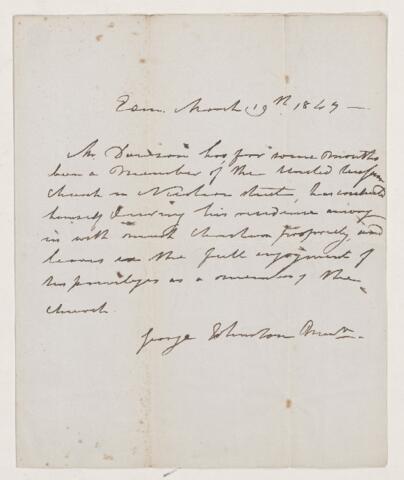 Edin. March 19th 1847 —
Mr. Davidson has for some months
been a Member of the United Secession
Church in Nicolson Street, has conducted
himself during his residence among
us with much Christian propriety, and
leaves in the full enjoyment of
his privileges as a member of the
Church.
George Johnston Minr.